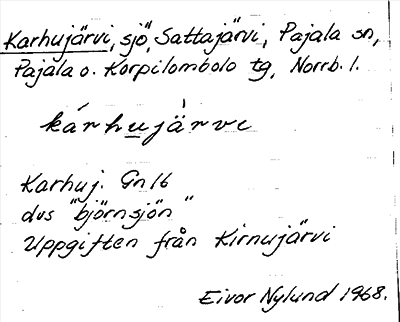 Karhujärvi, sjö, Sattajärvi, Pajala sn,
Pajala o. Korpilombolo tg, Norrb. l.
kárhujä̀rvi
Karhuj. Gn 16
dvs "björnsjön"
Uppgiften från Kirnujärvi
Eivor Nylund 1968.